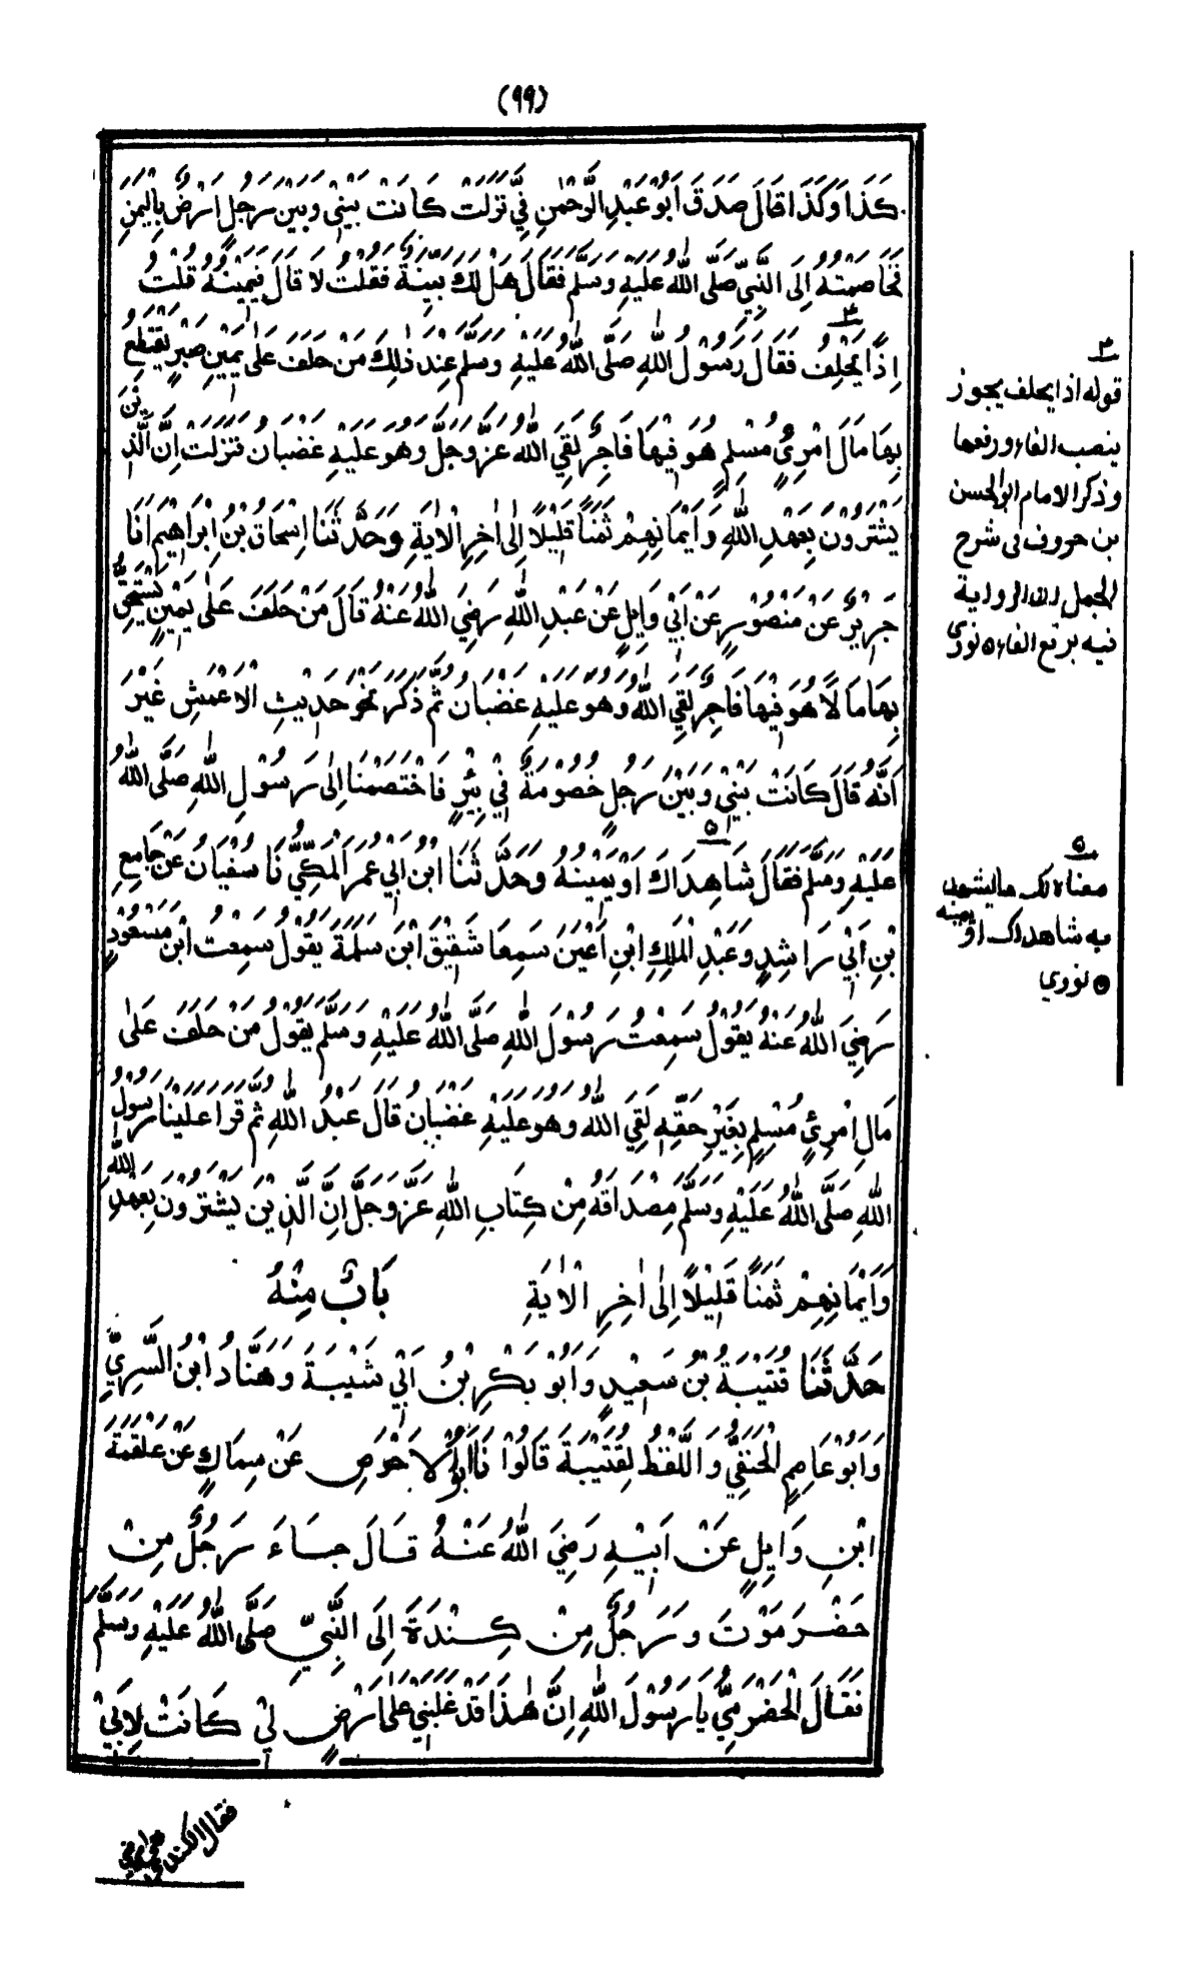 (٩٩)
كَذَا وَكَذَا قَالَ صَدَقَ اَبُوْ عَبْدِ الرَّحْمٰنِ فِيَّ نَزَلَتْ كَانَتْ بَيْنِيْ وَبَيْنَ رَجُلٍ اَرْضٌ بِالْيَمَنِ
فَخَاصَمْتُهُ اِلَى النَّبِيِّ صَلَّى اللّٰهُ عَلَيْهِ وَسَلَّمَ فَقَالَ هَلْ لَكَ بَيِّنَةٌ فَقُلْتُ لَا قَالَ فَيَمِيْنُهُ قُلْتُ
اِذًا يَحْلِفُ فَقَالَ رَسُوْلُ اللّٰهِ صَلَّى اللّٰهُ عَلَيْهِ وَسَلَّمَ عِنْدَ ذٰلِكَ مَنْ حَلَفَ عَلٰى يَمِيْنِ صَبْرٍ يَقْتَطِعُ
بِهَا مَالَ امْرِئٍ مُسْلِمٍ هُوَ فِيْهَا فَاجِرٌ لَقِيَ اللّٰهَ عَزَّ وَجَلَّ وَهُوَ عَلَيْهِ غَضْبَانُ فَنَزَلَتْ اِنَّ الَّذِيْنَ
يَشْتَرُوْنَ بِعَهْدِ اللّٰهِ وَاَيْمَانِهِمْ ثَمَنًا قَلِيْلًا اِلٰى اٰخِرِ الْاٰيَةِ وَحَدَّثَنَا اِسْحَاقُ بْنُ اِبْرَاهِيْمَ اَنَا
جَرِيْرٌ عَنْ مَنْصُوْرٍ عَنْ اَبِيْ وَايِلٍ عَنْ عَبْدِ اللّٰهِ رَضِيَ اللّٰهُ عَنْهُ قَالَ مَنْ حَلَفَ عَلٰى يَمِيْنٍ يَسْتَحِقُّ
بِهَا مَالًا هُوَ فِيْهَا فَاجِرٌ لَقِيَ اللّٰهَ وَهُوَ عَلَيْهِ غَضْبَانُ ثُمَّ ذَكَرَ نَحْوَ حَدِيْثِ الْاَعْمَشِ غَيْرَ
اَنَّهُ قَالَ كَانَتْ بَيْنِيْ وَبَيْنَ رَجُلٍ خُصُوْمَةٌ فِيْ بِئْرٍ فَاخْتَصَمْنَا اِلٰى رَسُوْلِ اللّٰهِ صَلَّى اللّٰهُ
عَلَيْهِ وَسَلَّمَ فَقَالَ شَاهِدَاكَ اَوْ يَمِيْنُهُ وَحَدَّثَنَا ابْنُ اَبِيْ عُمَرَ الْمَكِّيُّ نَا سُفْيَانُ عَنْ جَامِعِ
بْنِ اَبِيْ رَاشِدٍ وَعَبْدِ الْمَلِكِ ابْنِ اَعْيَنَ سَمِعَا شَقِيْقَ ابْنَ سَلَمَةَ يَقُوْلُ سَمِعْتُ ابْنَ مَسْعُوْدٍ
رَضِيَ اللّٰهُ عَنْهُ يَقُوْلُ سَمِعْتُ رَسُوْلَ اللّٰهِ صَلَّى اللّٰهُ عَلَيْهِ وَسَلَّمَ يَقُوْلُ مَنْ حَلَفَ عَلٰى
مَالِ امْرِئٍ مُسْلِمٍ بِغَيْرِ حَقِّهِ لَقِيَ اللّٰهَ وَهُوَ عَلَيْهِ غَضْبَانُ قَالَ عَبْدُ اللّٰهِ ثُمَّ قَرَا عَلَيْنَا رَسُوْلُ
اللّٰهِ صَلَّى اللّٰهُ عَلَيْهِ وَسَلَّمَ مِصْدَاقَهُ مِنْ كِتَابِ اللّٰهِ عَزَّ وَجَلَّ اِنَّ الَّذِيْنَ يَشْتَرُوْنَ بِعَهْدِ اللّٰهِ
وَاَيْمَانِهِمْ ثَمَنًا قَلِيْلًا اِلٰى اٰخِرِ الْاٰيَةِ بَابٌ مِنْهُ
حَدَّثَنَا قُتَيْبَةُ بْنُ سَعِيْدٍ وَاَبُوْ بَكْرِ بْنُ اَبِيْ شَيْبَةَ وَهَنَّادُ ابْنُ السَّرِيِّ
وَاَبُوْ عَاصِمٍ الْحَنَفِيُّ وَاللَّفْظُ لِقُتَيْبَةَ قَالُوْا نَا اَبُو الْاَحْوَصِ عَنْ سِمَاكٍ عَنْ عَلْقَمَةَ
ابْنِ وَايِلٍ عَنْ اَبِيْهِ رَضِيَ اللّٰهُ عَنْهُ قَالَ جَاءَ رَجُلٌ مِنْ
حَضْرَمَوْتَ وَرَجُلٌ مِنْ كِنْدَةَ اِلَى النَّبِيِّ صَلَّى اللّٰهُ عَلَيْهِ وَسَلَّمَ
فَقَالَ الْحَضْرَمِيُّ يَا رَسُوْلَ اللّٰهِ اِنَّ هٰذَا قَدْ غَلَبَنِيْ عَلٰى اَرْضٍ لِيْ كَانَتْ لِاَبِيْ
فقال الكندي هي ارضي
٣
قوله اذا يحلف يجوز
بنصب الفاء ورفعها
وذكر الامام ابو الحسن
بن خروف فى شرح
الجمل ان الرواية
فيه برفع الفاء ٥ نووى
٥
معناه لك ما يشهد
به شاهداك او يمينه
٥ نووي